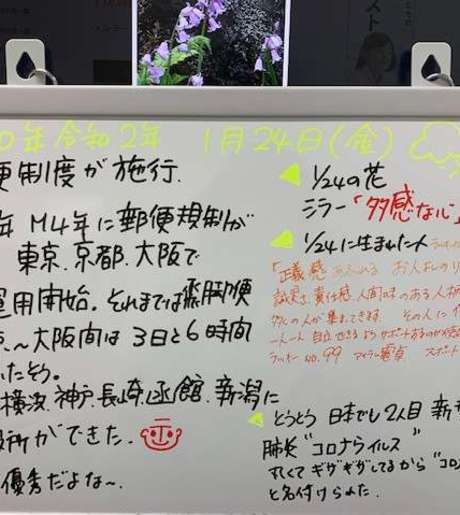 0年 令和2年 1月24日(金)
便制度が施行.
年 M4年に郵便規制が
東京.京都.大阪で
運用開始。それまでは飛脚便
京~大阪間は3日と6時間
いたそう。
横浜.神戸.長崎.函館.新潟に
役所ができた.
優秀だよな~.
1/24の花
ミラー「多感な心」
1/24に生まれた人
「正義感あふれる お人よしの
誠実さ 責任感 人間味のある人
多くの人が集まってきます. その人に
一人一人 自立できるようサポートするのが
ラッキー NO.99 アイテム スポート
とうとう 日本でも2人目 新
肺炎 "コロナウイルス"
丸くてギザギザしてるから "コロ
と名付けられた.
スト